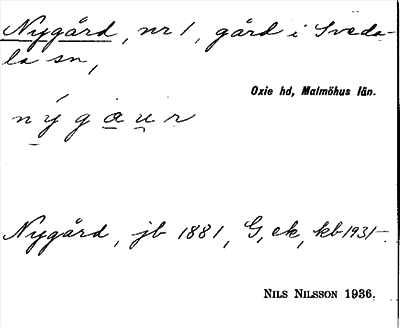 Nygård, nr 1, gård i Sveda-
la sn,
Oxie hd, Malmöhus län.
nýgaur
Nygård, jb 1881, G, ek, kb 1931-.
NILS NILSSON 1936.